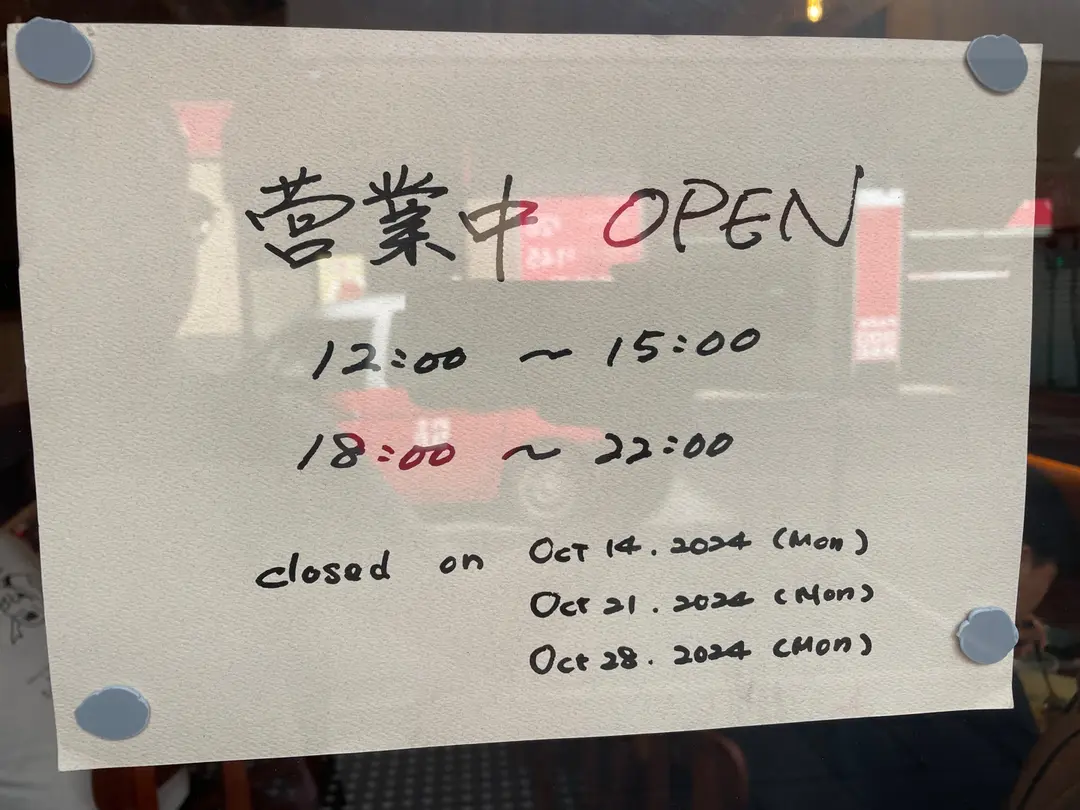 営業中 OPEN
12:00 ~ 15:00
18:00 ~ 22:00
closed on Oct 14. 2024 (Mon)
Oct 21. 2024 (Mon)
Oct 28. 2024 (Mon)